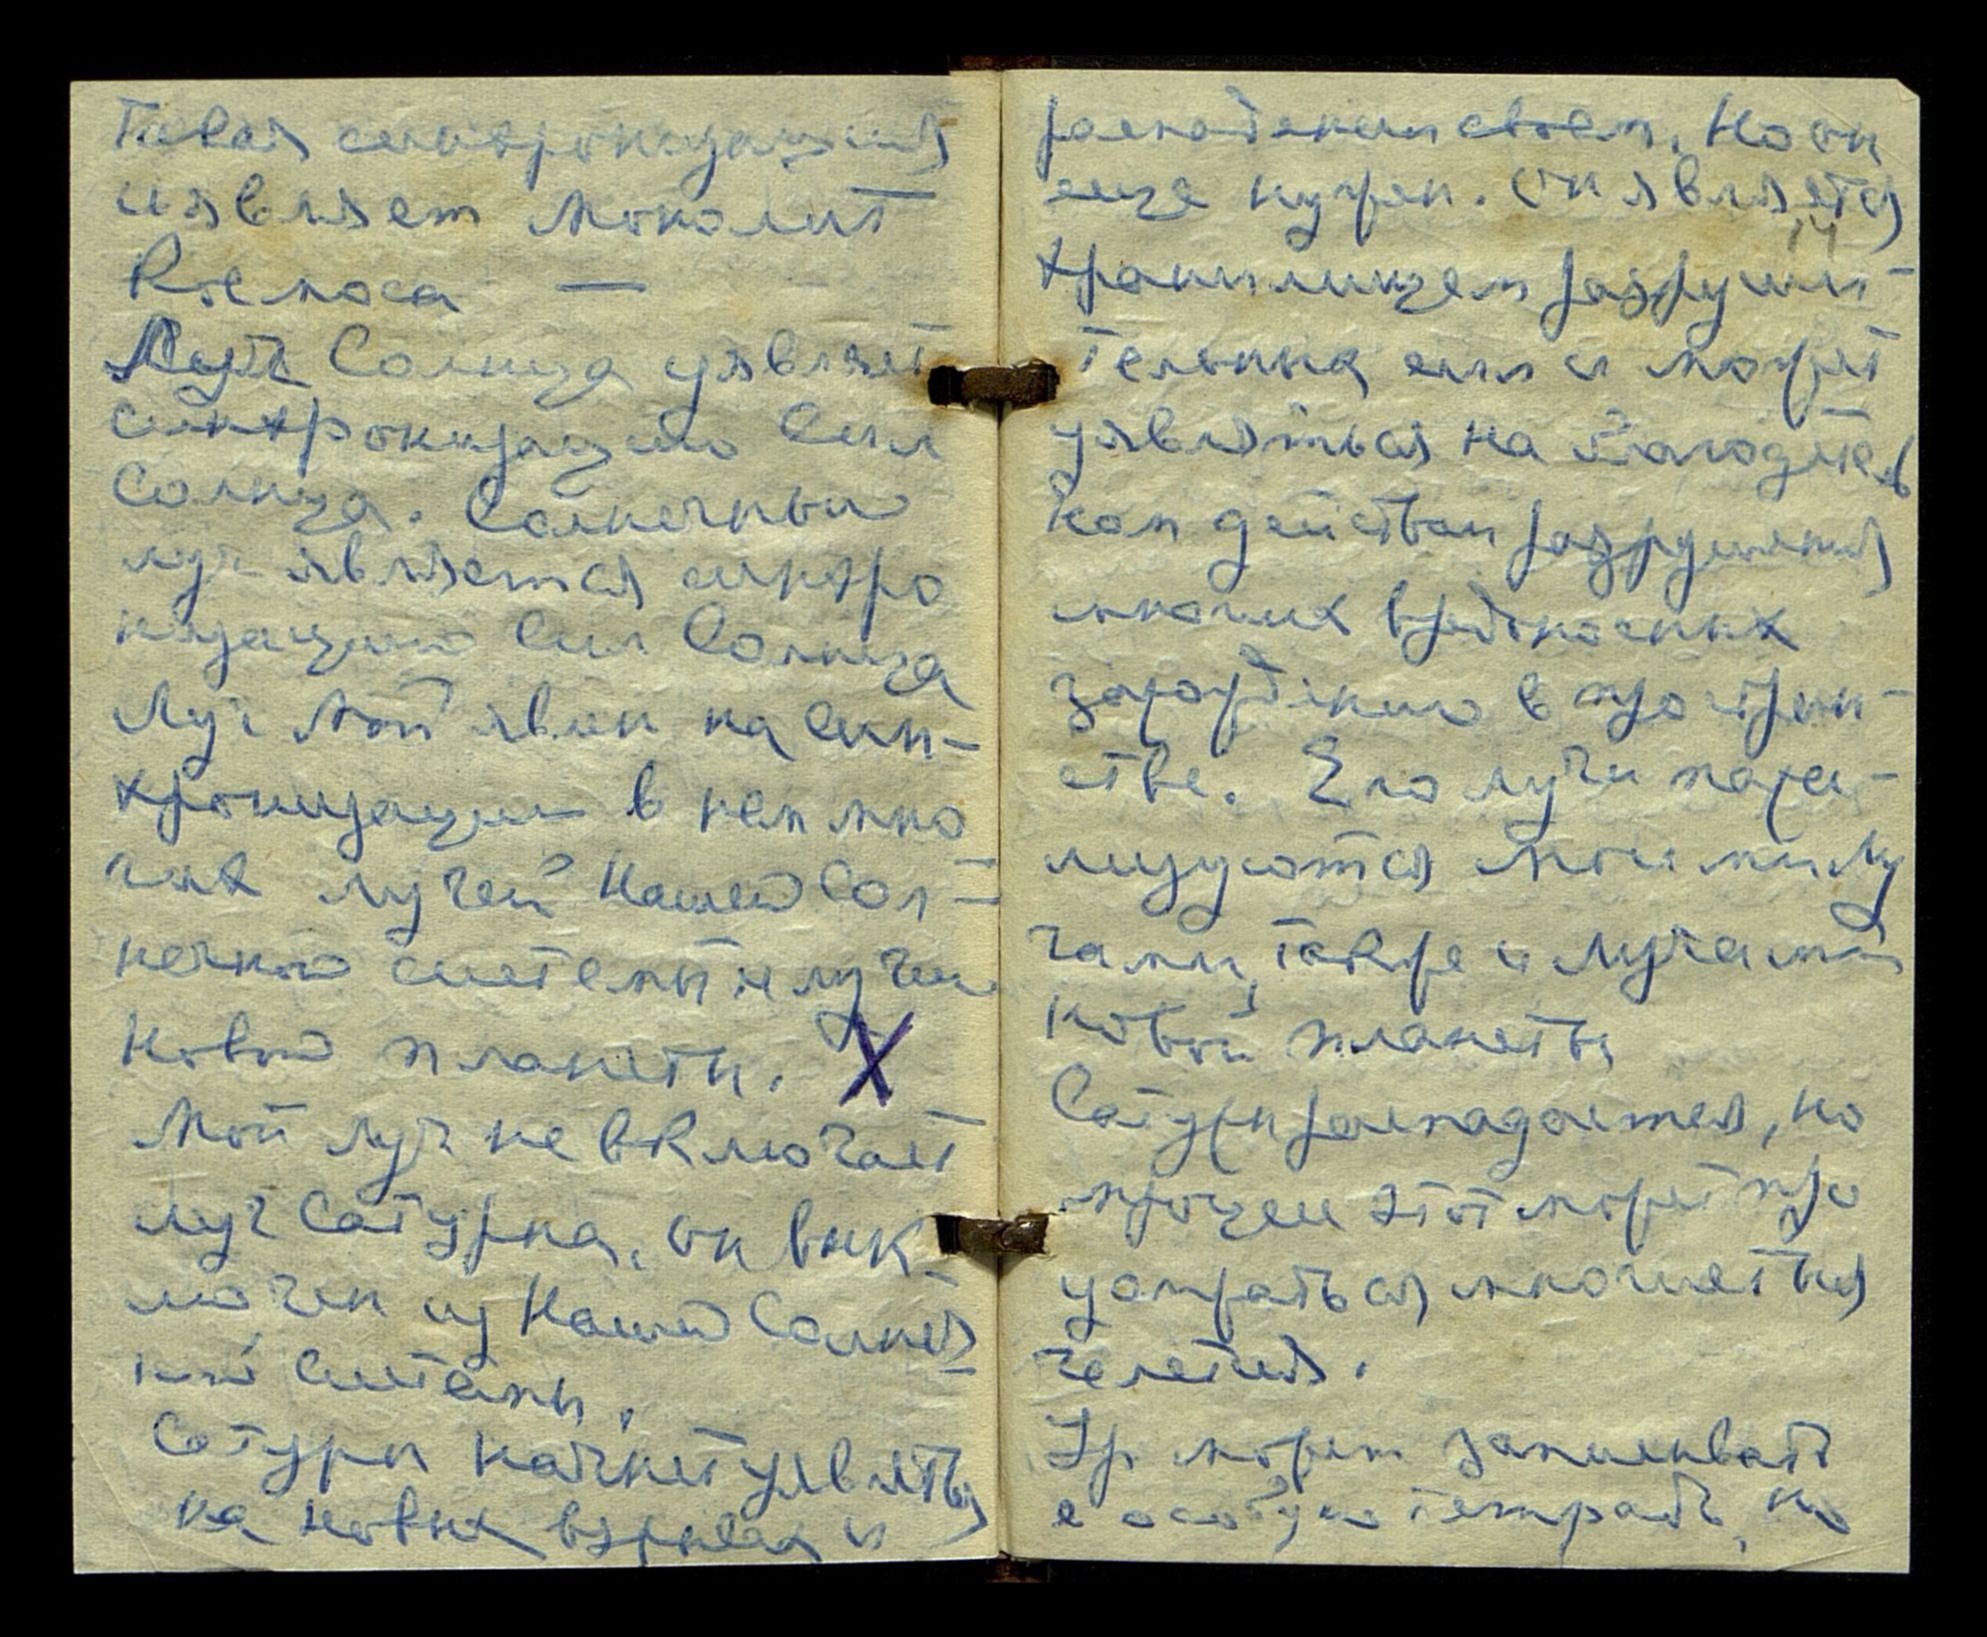 Такая синхронизация
и являет Монолит
Космоса —
Луч Солнца уявляет
синхронизацию Сил
Солнца. Солнечный
луч является синхро
низацией Сил Солнца
Луч Мой явлен на Син-
хронизации в нем мно
гих лучей Нашей Сол-
нечной системы и лучей
новой планеты. X
Мой луч не включает
луч Сатурна, он вык-
лючен из Нашей Солнеч
ной Системы.
Сатурн начнет уявляться
на новых взрывах и
распадении своем. Но он
еще нужен. Он является
14
хранилищем разруши-
тельных сил и может
уявляться на
Ком действии разрушения
многих вредоносных
зарождений в простран-
стве. Его лучи пара-
лизуются Моими Лу
чами, также и Лучами
новой планеты
Сатурн распадается, но
процесс этот может про
должаться многие тыся
челетия.
Ур может записывать
в особую тетрадь, но